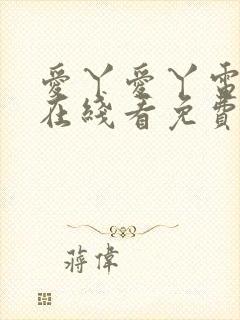 愛丫愛丫電
在綫看免費
蔣偉